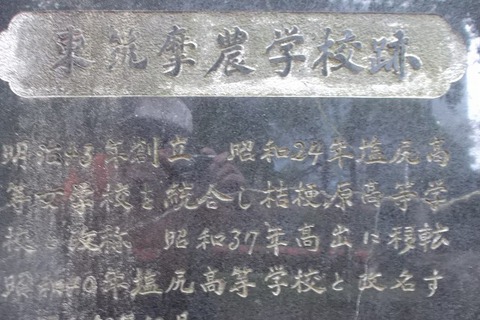 東筑摩農学校跡
明治43年創立 昭和24年塩尻高
等女学校を統合し桔梗原高等学
校と改称 昭和37年高出に移転
昭和40年塩尻高等学校と改名す